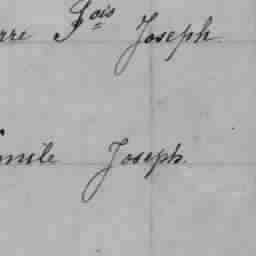 rre Fois Joseph
mile Joseph